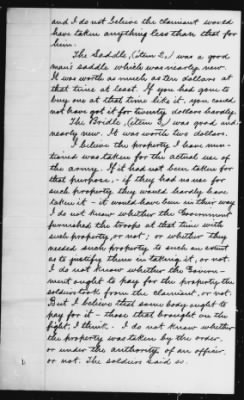 and I do not believe the claimant would
have taken anything less than that for
him.
The Saddle, (item 2,) was a good
man's saddle which was nearly new.
It was worth as much as ten dollars at
that time at least. If you had gone to
buy one at that time like it, you could
not have got it for twenty dollars hardly.
The Bridle, (item 3,) was good and
nearly new. It was worth two dollars.
I believe the property I have men-
tioned was taken for the actual use of
the army. If it had not been taken for
that purpose, - if they had no use for
such property they would hardly have
taken it - it would have been in their way.
I do not know whether the Government
furnished the troops at that time with
such property, or not; or whether they
needed such property to such an extent
as to justify them in taking it, or not.
I do not know whether the Govern-
ment ought to pay for the property the
soldiers took from the claimant, or not.
But I believe that some body ought to
pay for it - those that brought on the
fight, I think. - I do not know whether
the property was taken by the order,
or under the authority of an officer
or not. The soldiers said so.